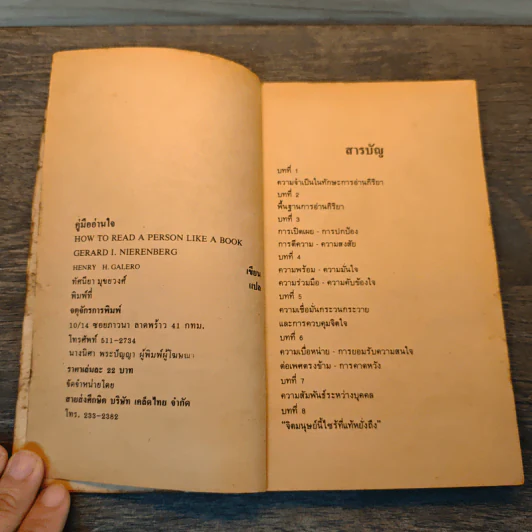 คู่มืออ่านใจ
HOW TO READ A PERSON LIKE A BOOK
GERARD I. NIERENBERG
HENRY H. GALERO
เขียน
ทัศนียา มุขยวงศ์
แปล
พิมพ์ที่
จตุจักรการพิมพ์
10/14 ซอยภาวนา ลาดพร้าว 41 กทม.
โทรศัพท์ 511-2734
นางนิศา พระปัญญา ผู้พิมพ์ผู้โฆษณา
ราคาเล่มละ 22 บาท
จัดจำหน่ายโดย
สายส่งศึกษิต บริษัท เคล็ดไทย จำกัด
โทร. 235-2382
สารบัญ
บทที่ 1
ความจำเป็นในทักษะการอ่านกิริยา
บทที่ 2
พื้นฐานการอ่านกิริยา
บทที่ 3
การเปิดเผย - การปกป้อง
การตีความ - ความสงสัย
บทที่ 4
ความพร้อม - ความมั่นใจ
ความร่วมมือ - ความคับข้องใจ
บทที่ 5
ความเชื่อมั่นกระวนกระวาย
และการควบคุมจิตใจ
บทที่ 6
ความเบื่อหน่าย - การยอมรับความสนใจ
ต่อเพศตรงข้าม - การคาดหวัง
บทที่ 7
ความสัมพันธ์ระหว่างบุคคล
บทที่ 8
"จิตมนุษย์นี้ไซร้ที่แท้หยั่งถึง"